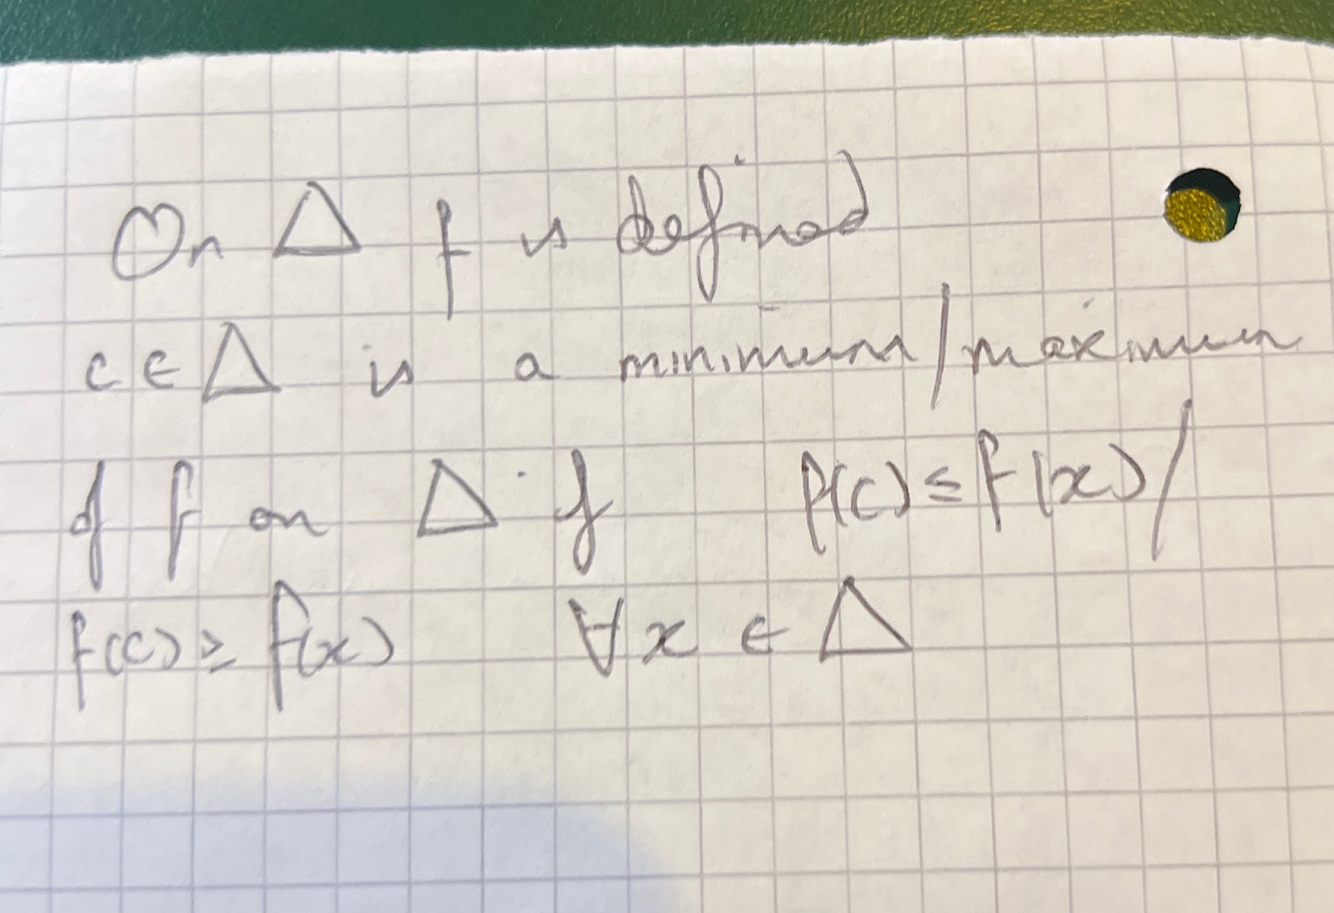 On Δ f is defined
c ∈ Δ is a minimum/maximum
of f on Δ if f(c) ≤ f(x)/
f(c) ≥ f(x) ∀x ∈ Δ